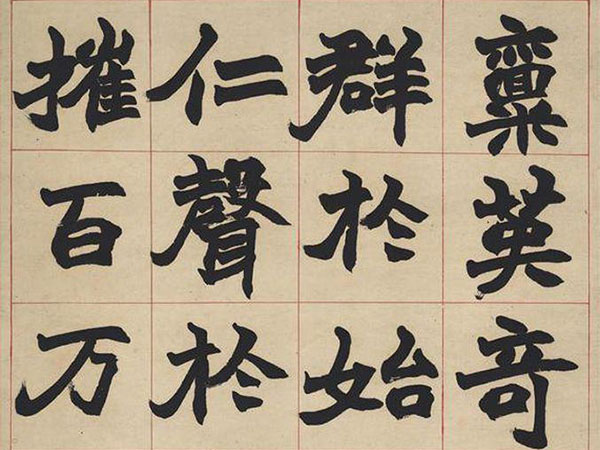 稟英竒
群於始
仁聲於
摧百万